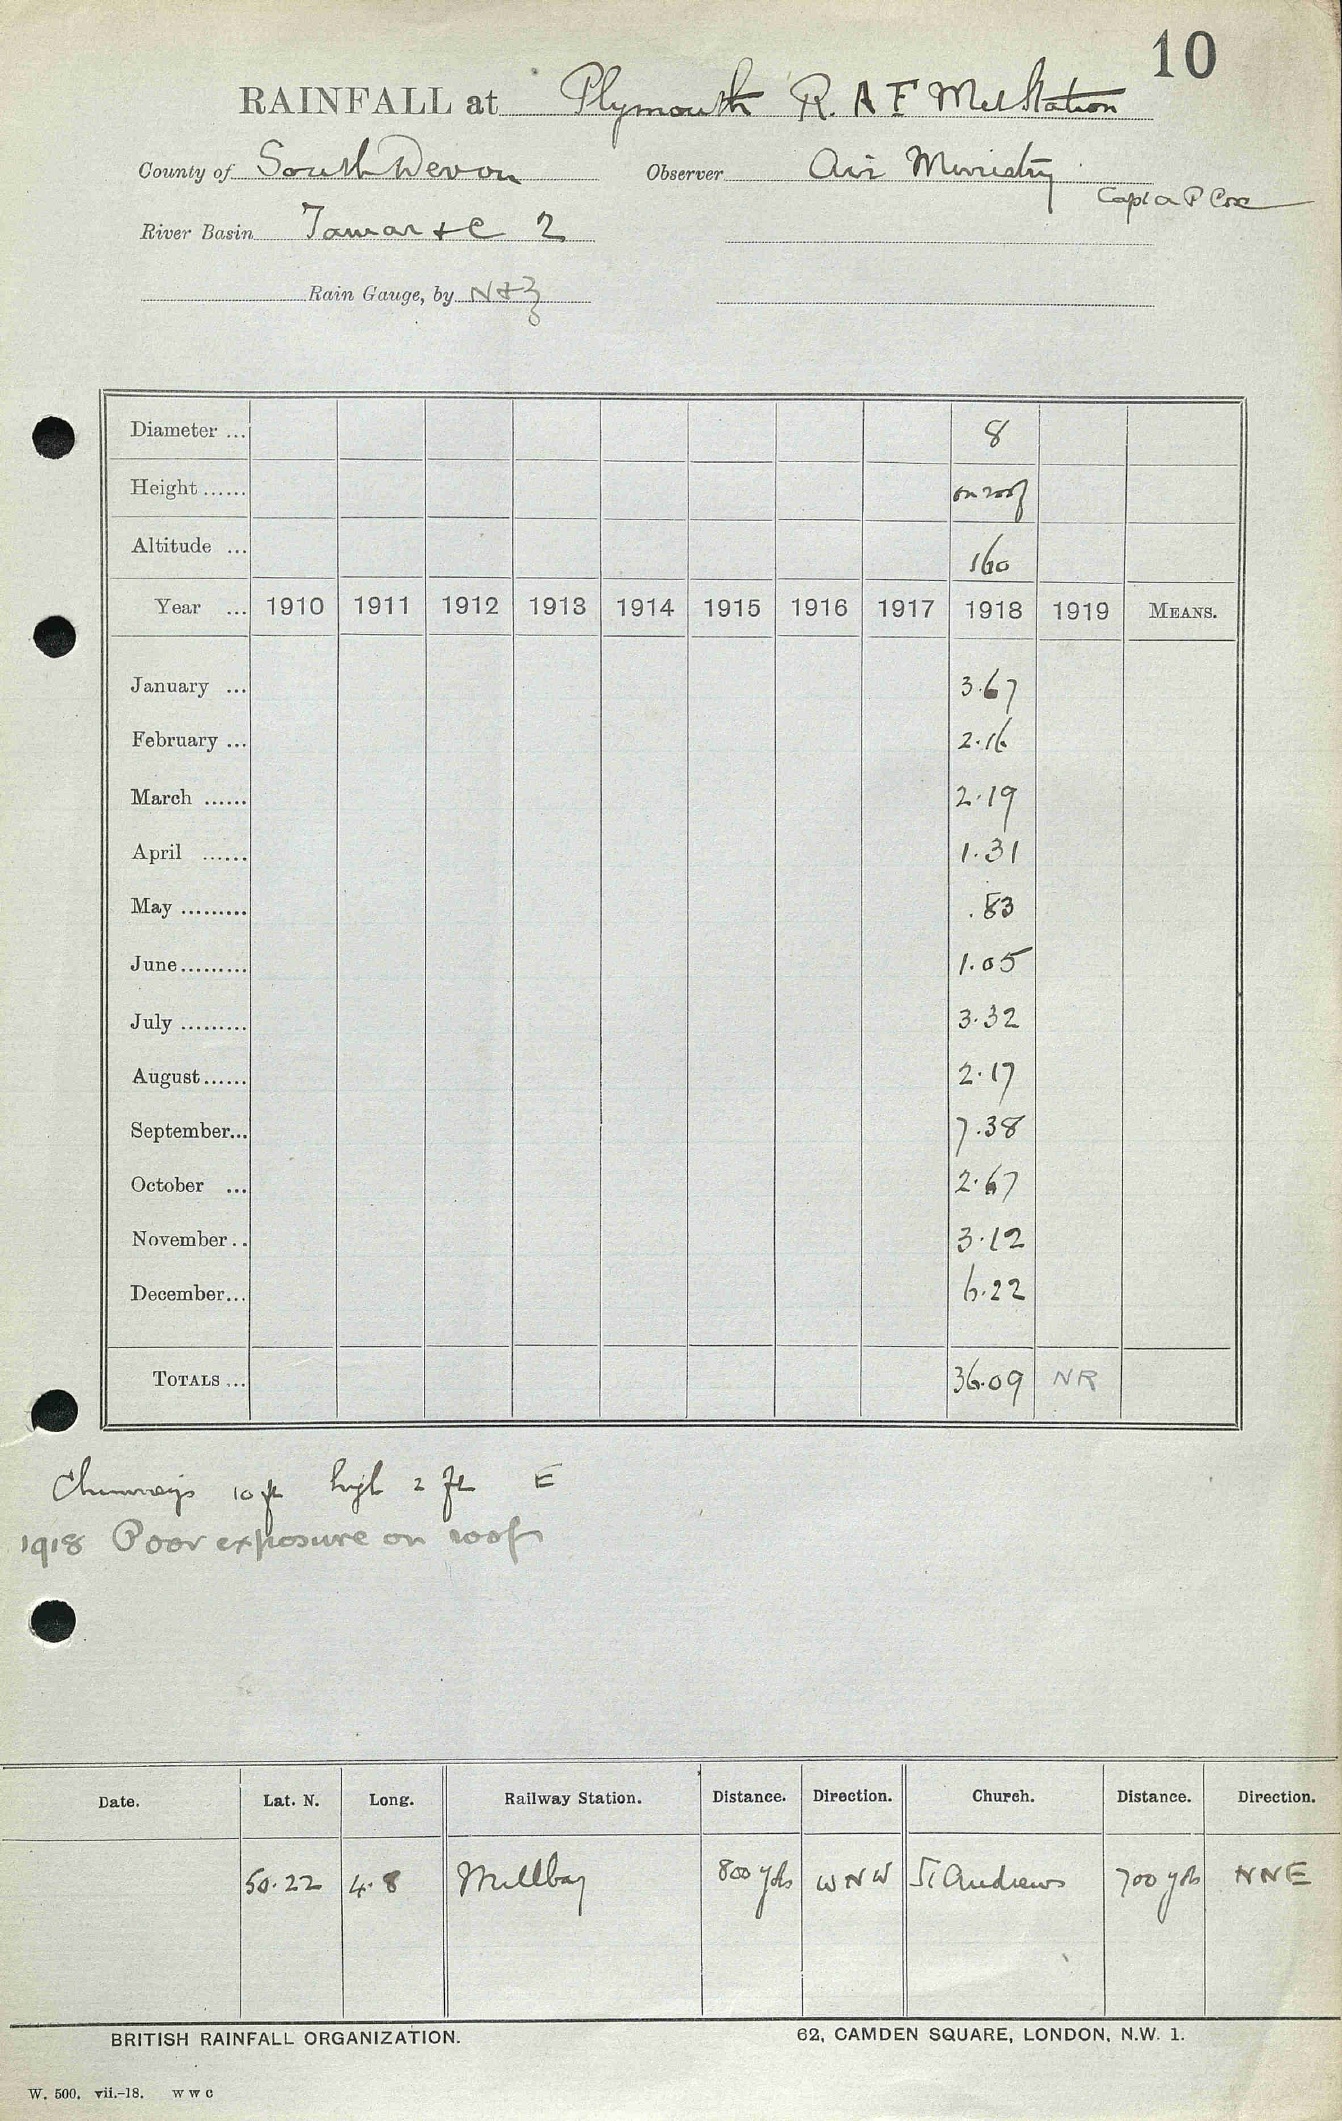 10
RAINFALL at Plymouth R.A F Met Station
County of South Devon Observer Air Ministry
Capt a P Cox
River Basin Tamar &c 2
Rain Gauge, by N & Z
Diameter ... 8
Height ...... on roof
Altitude ... 160
Year ... 1910 1911 1912 1913 1914 1915 1916 1917 1918 1919 MEANS.
January ... 3.67
February ... 2.16
March ...... 2.19
April ...... 1.31
May ......... .83
June ......... 1.05
July ......... 3.32
August ...... 2.17
September... 7.38
October ... 2.67
November .. 3.12
December... 6.22
TOTALS ... 36.09 NR
Chimneys 10 ft high 2 ft E
1918 Poor exposure on roof
Date. Lat. N. Long. Railway Station. Distance. Direction. Church. Distance. Direction.
50.22 4.8 Millbay 800 yds W N W St Andrews 700 yds N N E
BRITISH RAINFALL ORGANIZATION. 62, CAMDEN SQUARE, LONDON, N.W. 1.
W. 500. vii.-18. W W C